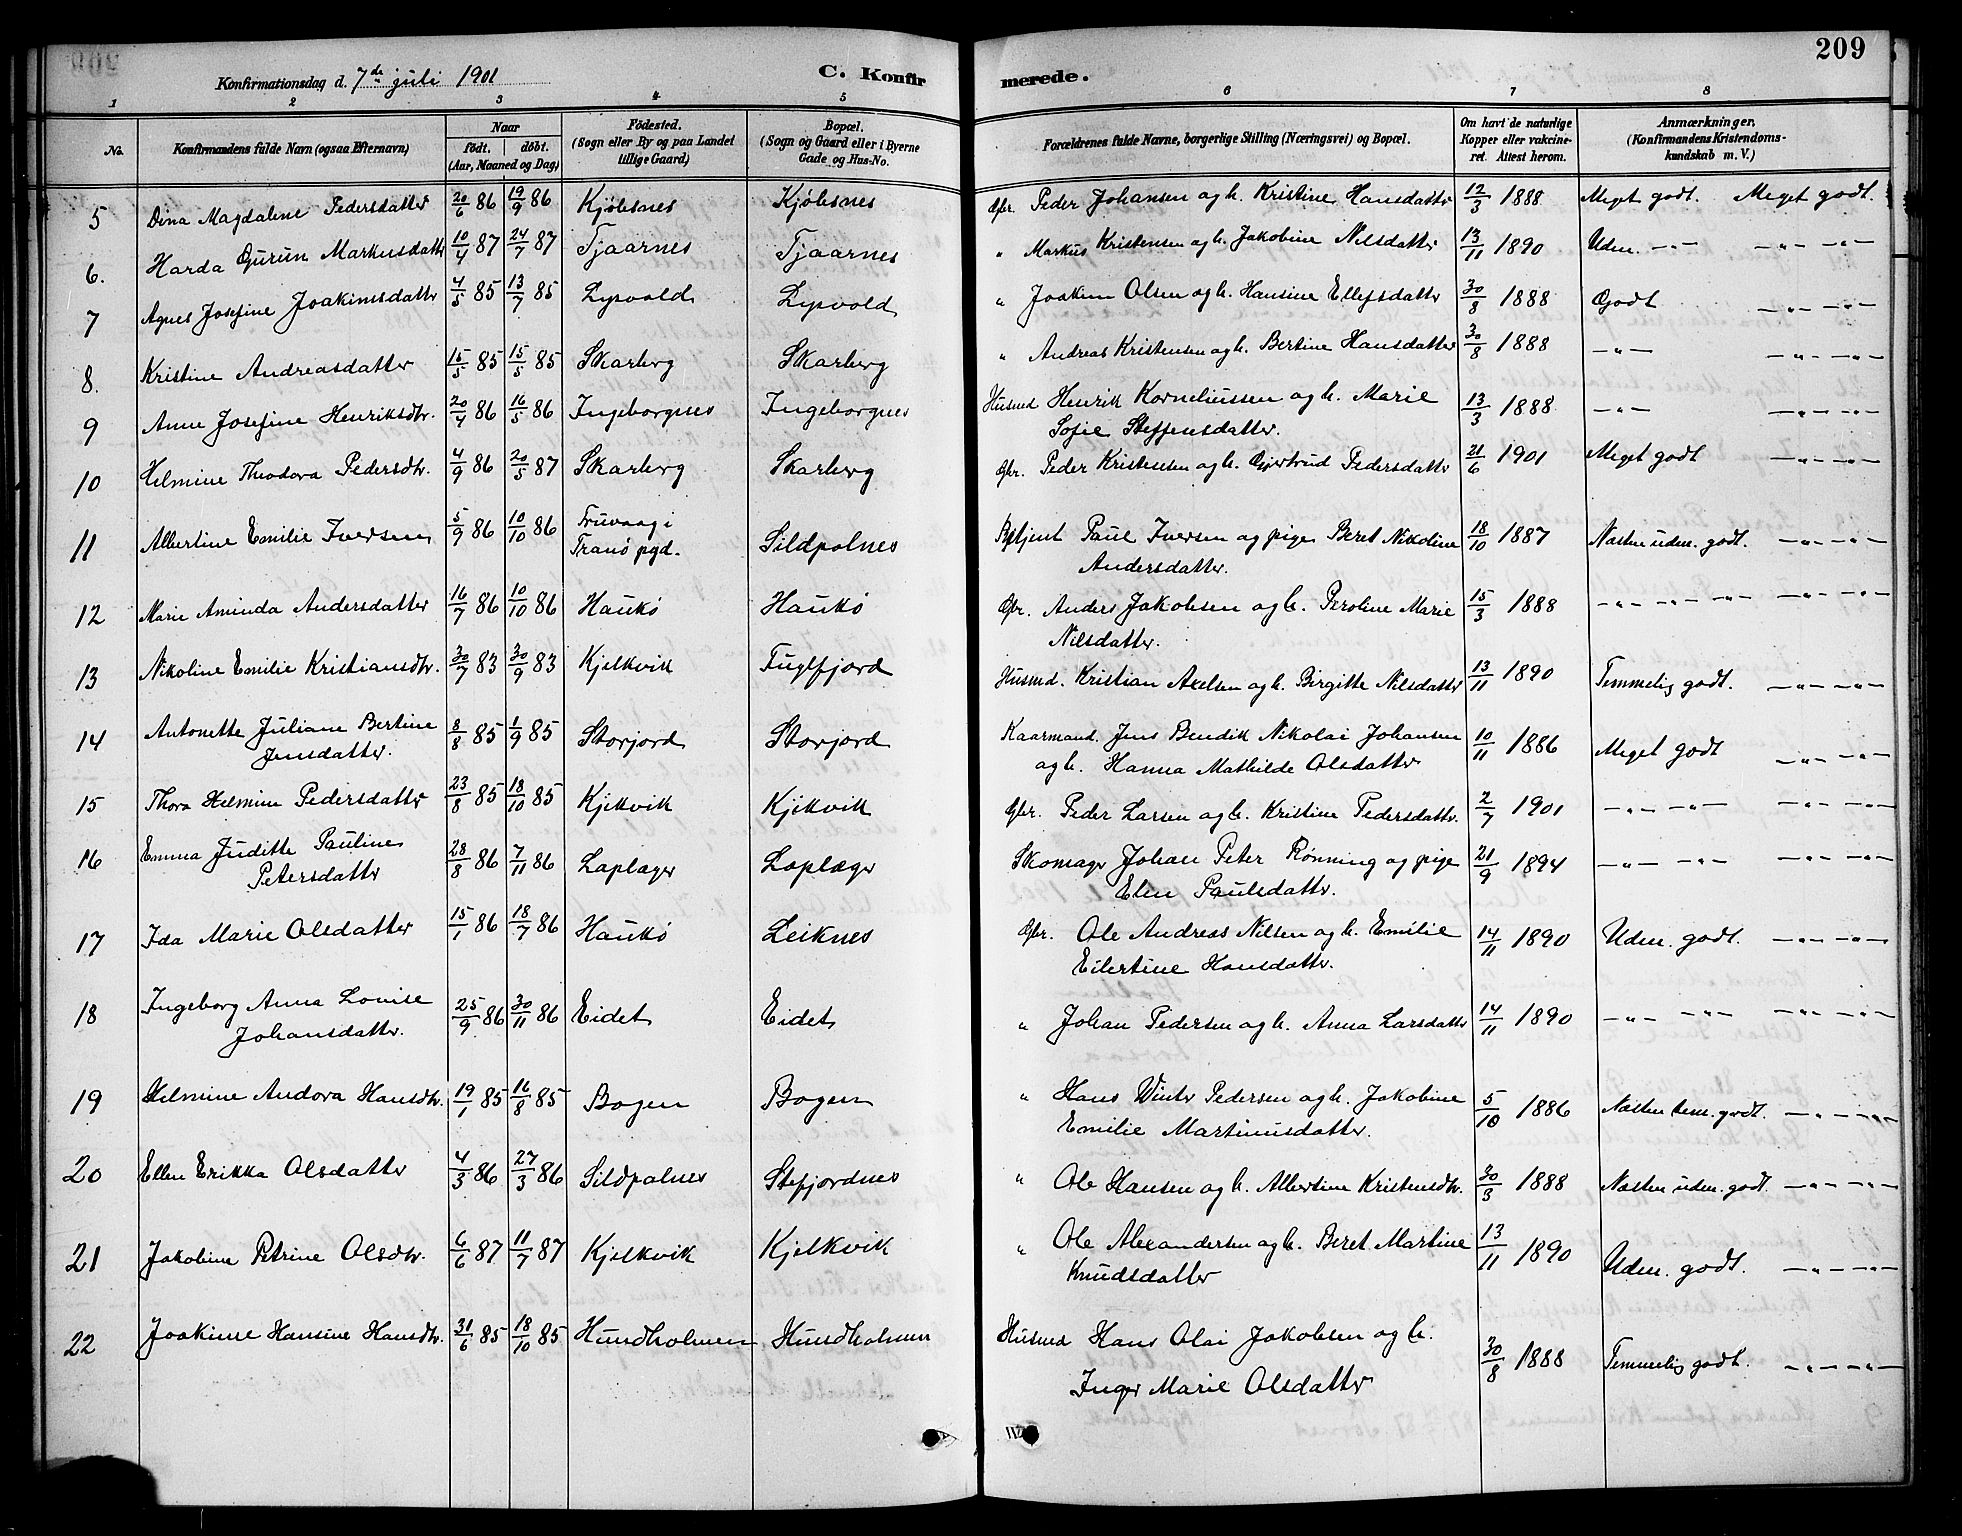 209
Konfirmationsdag d. 7de juli 1901 C. Konfirmerede.
1 2 3 4 5 6 7 8
No. Konfirmandens fulde Navn (ogsaa Efternavn) Naar født. døbt. (Aar, Maaned og Dag) Fødested. (Sogn eller By og paa Landet tillige Gaard) Bopæl. (Sogn og Gaard eller i Byerne Gade og Hus-No. Forældrenes fulde Navne, borgerlige Stilling (Næringsvei) og Bopæl. Om havt de naturlige Kopper eller vakcineret. Attest herom. Anmærkninger. (Konfirmandens Kristendomskundskab m. V.)
5 Dina Magdalene Pedersdatter 20/6 86 19/9 86 Kjøbsnes Kjøbsnes Gbr. Peder Johansen og h. Kristine Hansdatter 12/3 1888 Meget godt. Meget godt.
6. Harda Gurun Markusdatter 10/4 87 24/7 87 Tjaarnes Tjaarnes " Markus Kristensen og h. Jakobine Nilsdatter 13/11 1890 Uden. —"— —"— —"—
7 Agnes Josefine Joakimsdatter 4/5 85 13/7 85 Lysvold Lysvold " Joakim Olsen og h. Hansine Ellefsdatter 30/8 1888 Godt —"— —"—
8. Kristine Andreasdatter 15/5 85 15/5 85 Skarberg Skarberg " Andreas Kristensen og h. Bertine Hansdatter 30/8 1888 —"— —"— —"—
9 Anne Josefine Henriksdtr. 20/4 86 16/5 86 Ingeborgnes Ingeborgnes Husmd Henrik Korneliussen og h. Marie 13/3 1888 —"— —"— —"—
Sofie Steffensdatter.
10 Helmine Theodora Pedersdtr. 4/9 86 20/5 87 Skarberg Skarberg Gbr. Peder Kristensen og h. Gjertrud Pedersdatter 21/6 1901 Meget godt —"— —"—
11 Albertine Emilie Iversen 5/9 86 10/10 86 Truvaag i Sildpolnes Paul Iversen og pige Beret Nikoline 18/10 1887 Næsten uden. godt. —"— —"—
Tranø pgd. Andersdatter.
12 Marie Aminda Andersdatter 16/7 86 10/10 86 Haukø Haukø Gbr. Anders Jakobsen og h. Peroline Marie 15/3 1888 —"— —"— —"— —"—
Nilsdatter.
13 Nikoline Emilie Kristiansdtr. 30/7 83 30/9 83 Kjelkvik Fuglfjord Husmd. Kristian Axelsen og h. Birgitte Nilsdatter 13/11 1890 Temmelig godt. —"— —"—
14 Antonette Juliane Bertine 8/8 85 1/9 85 Storjord Storjord Kaarmand. Jens Bendik Nikolai Johansen 10/11 1886 Meget godt —"— —"—
Jensdatter. og h. Hanna Mathilde Olsdatter
15 Thora Helmine Pedersdatter 23/8 85 18/10 85 Kjikvik Kjikvik Gbr. Peder Larsen og h. Kristine Pedersdatter. 2/7 1901 —"— —"— —"— —"—
16 Emma Juditte Pauline 28/8 86 7/11 86 Laplæger Laplæger Skomager Johan Peter Rønning og pige 21/9 1894 —"— —"— —"— —"—
Petersdatter Elen Paulsdatter.
17 Ida Marie Olsdatter 15/1 86 18/7 86 Haukø Leiknes Gbr. Ole Andreas Nilsen og h. Emilie 14/11 1890 Uden. godt. —"— —"—
Eilertine Hansdatter.
18 Ingeborg Anna Lovise 25/9 86 30/11 86 Eidet Eidet " Johan Pedersen og h. Anna Larsdatter 14/11 1890 —"— —"— —"— —"—
Johansdatter.
19 Helmine Andora Hansdtr. 19/1 85 16/8 85 Bogen Bogen " Hans Winter Pedersen og h. Jakobine 5/10 1886 Næsten tem. godt. —"— —"—
Emilie Martinusdatter.
20 Ellen Erikka Olsdatter 4/3 86 27/3 86 Sildpolnes Stefjordnes " Ole Hansen og h. Albertine Kristensdtr. 30/3 1888 Næsten uden. godt. —"— —"—
21 Jakobine Petrine Olsdtr. 6/6 87 11/7 87 Kjelkvik Kjelkvik " Ole Alexandersen og h. Beret Martine 13/11 1890 Uden. godt. —"— —"—
Knudsdatter
22 Joakime Hansine Hansdtr. 31/6 85 18/10 85 Hundholmen Hundholmen Husmd Hans Olai Jakobsen og h. 30/8 1888 Temmelig godt. —"— —"—
Inger Marie Olsdatter